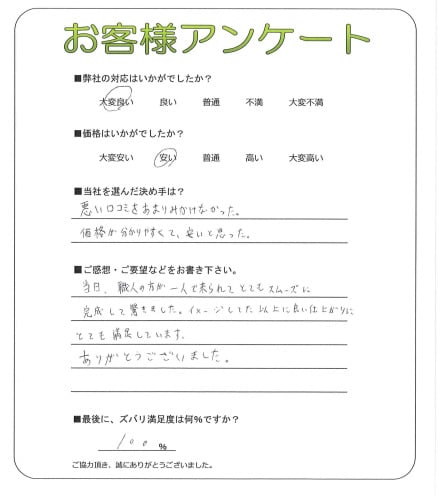 お客様アンケート
■弊社の対応はいかがでしたか？
大変良い 良い 普通 不満 大変不満
■価格はいかがでしたか？
大変安い 安い 普通 高い 大変高い
■当社を選んだ決め手は？
悪い口コミをあまりみかけなかった。
価格が分かりやすくて、安いと思った。
■ご感想・ご要望などをお書き下さい。
当日、職人の方が一人で来られてとてもスムーズに
完成して驚きました。イメージしてた以上に良い仕上がりに
とても満足しています。
ありがとうございました。
■最後に、ズバリ満足度は何%ですか？
100 %
ご協力頂き、誠にありがとうございました。